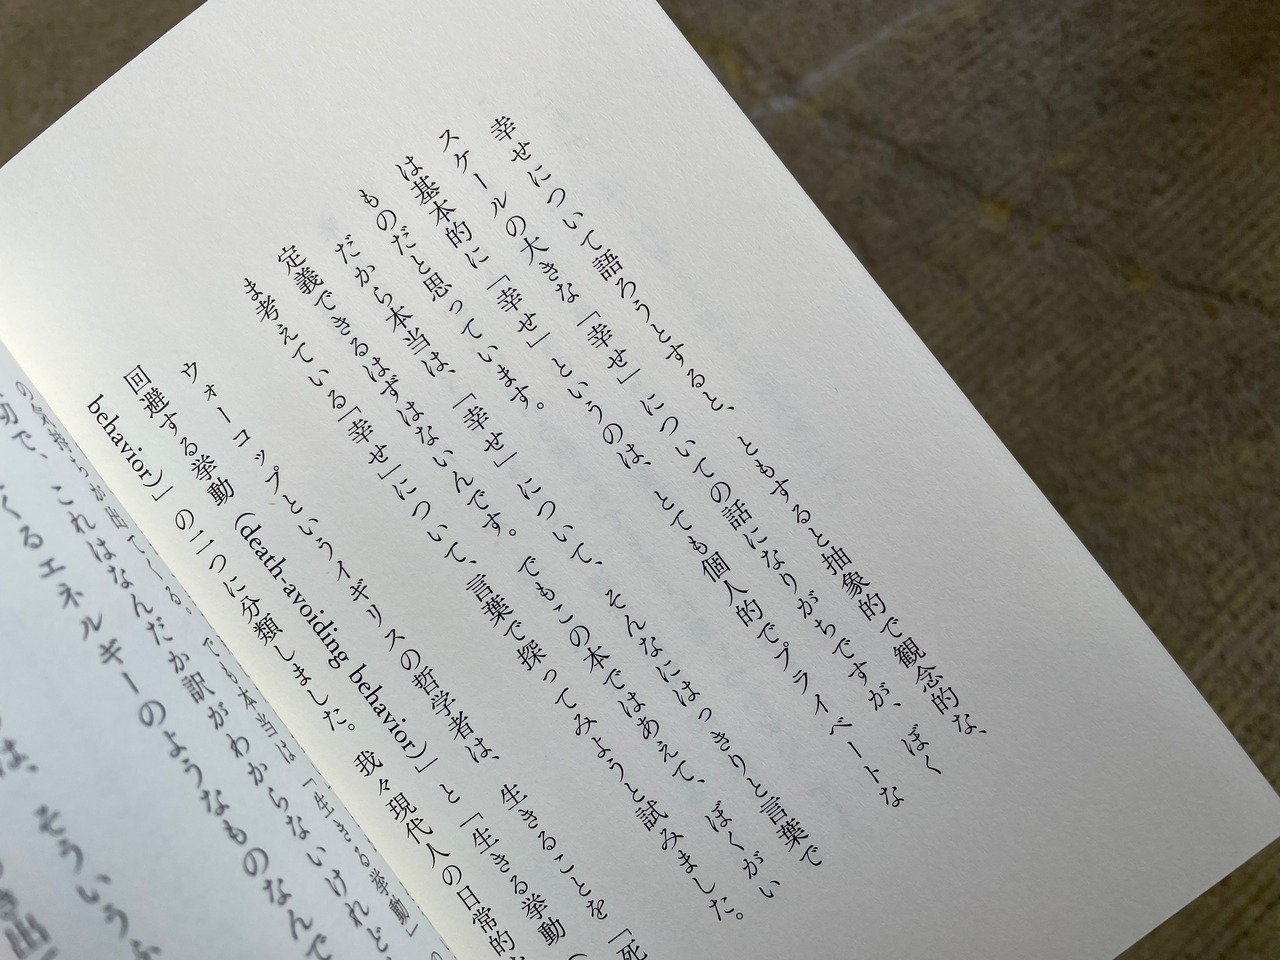 幸せについて語ろうとすると、ともすると抽象的で観念的な、
スケールの大きな「幸せ」についての話になりがちですが、ぼく
は基本的に「幸せ」というのは、とても個人的でプライベートな
ものだと思っています。
だから本当は、「幸せ」について、そんなにはっきりと言葉で
定義できるはずはないんです。でもこの本ではあえて、ぼくがい
ま考えている「幸せ」について、言葉で探ってみようと試みました。
ウォーコップというイギリスの哲学者は、生きることを「死
回避する挙動（death-avoiding behavior）」と「生きる挙動（
behavior）」の二つに分類しました。我々現代人の日常的
の気持ちが出てくる。でも本当は「生きる挙動」の
で、これはなんだか訳がわからないけれど
くるエネルギーのようなものなんで
は、そういうふ